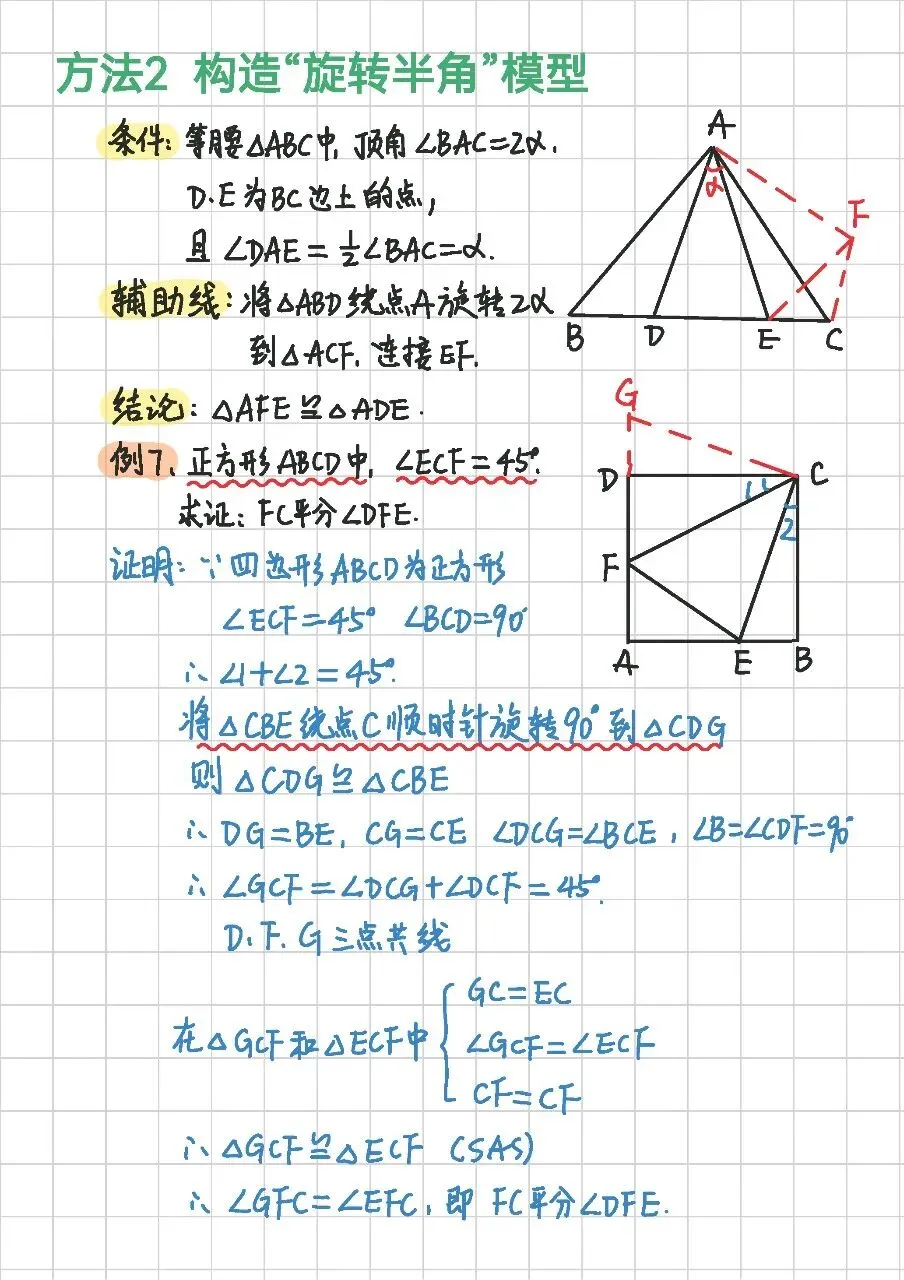 方法2 构造“旋转半角”模型
条件: 等腰△ABC中, 顶角∠BAC=2α.
D.E为BC边上的点,
且∠DAE=½∠BAC=α.
辅助线: 将△ABD绕点A旋转2α
到△ACF. 连接EF.
结论: △AFE≌△ADE.
A
α
F
B
D
E
C
例7、正方形ABCD中, ∠ECF=45°.
求证: FC平分∠DFE.
G
D
C
1
2
F
A
E
B
证明: ∵四边形ABCD为正方形
∠ECF=45° ∠BCD=90°
∴∠1+∠2=45°.
将△CBE绕点C顺时针旋转90°到△CDG
则△CDG≌△CBE
∴DG=BE, CG=CE ∠DCG=∠BCE, ∠B=∠CDF=90°
∴∠GCF=∠DCG+∠DCF=45°.
D.F.G三点共线
在△GCF和△ECF中
GC=EC
∠GCF=∠ECF
CF=CF
∴△GCF≌△ECF (SAS)
∴∠GFC=∠EFC, 即FC平分∠DFE.